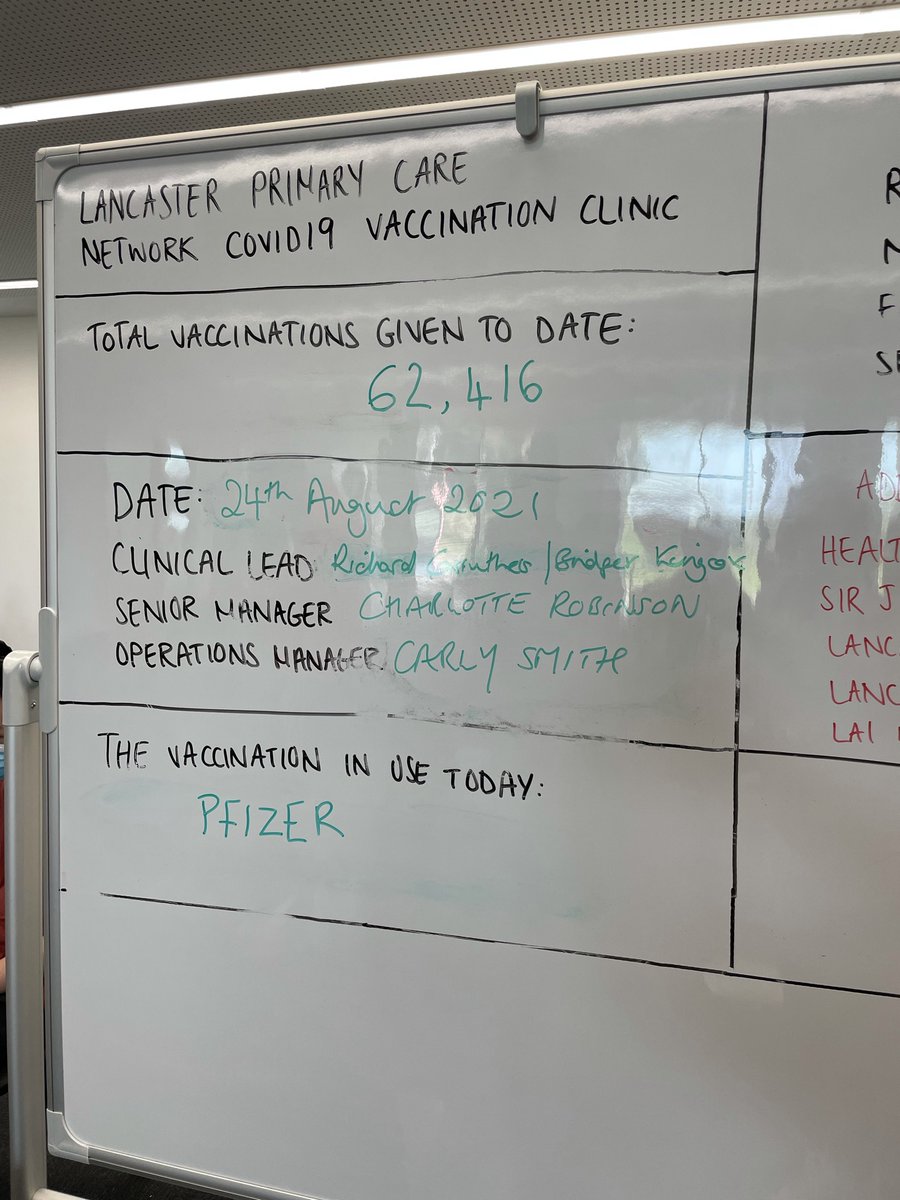 LANCASTER PRIMARY CARE
NETWORK COVID19 VACCINATION CLINIC
TOTAL VACCINATIONS GIVEN TO DATE:
62,416
DATE: 24th August 2021
CLINICAL LEAD Richard
SENIOR MANAGER CHARLOTTE ROBINSON
OPERATIONS MANAGER CARLY SMITH
THE VACCINATION IN USE TODAY:
PFIZER
R
F
SE
HEALT
SIR J
LANC
LANC
LAI